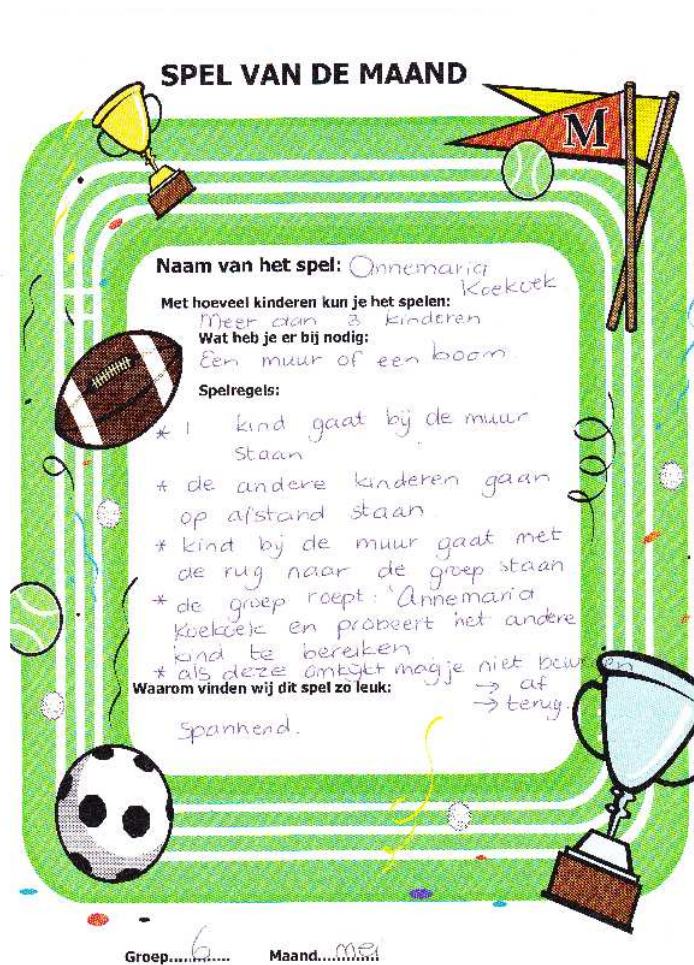 SPEL VAN DE MAAND
M
Naam van het spel: Annemaria
Koekoek
Met hoeveel kinderen kun je het spelen:
Meer dan 3 kinderen
Wat heb je er bij nodig:
Een muur of een boom.
Spelregels:
* 1 kind gaat bij de muur
staan
* de andere kinderen gaan
op afstand staan.
* kind bij de muur gaat met
de rug naar de groep staan
* de groep roept: 'Annemaria
Koekoek en probeert het andere
kind te bereiken
* als deze omkijkt mag je niet bewegen
→ af
→ terug.
Waarom vinden wij dit spel zo leuk:
Spannend.
Groep......6...... Maand......mei......